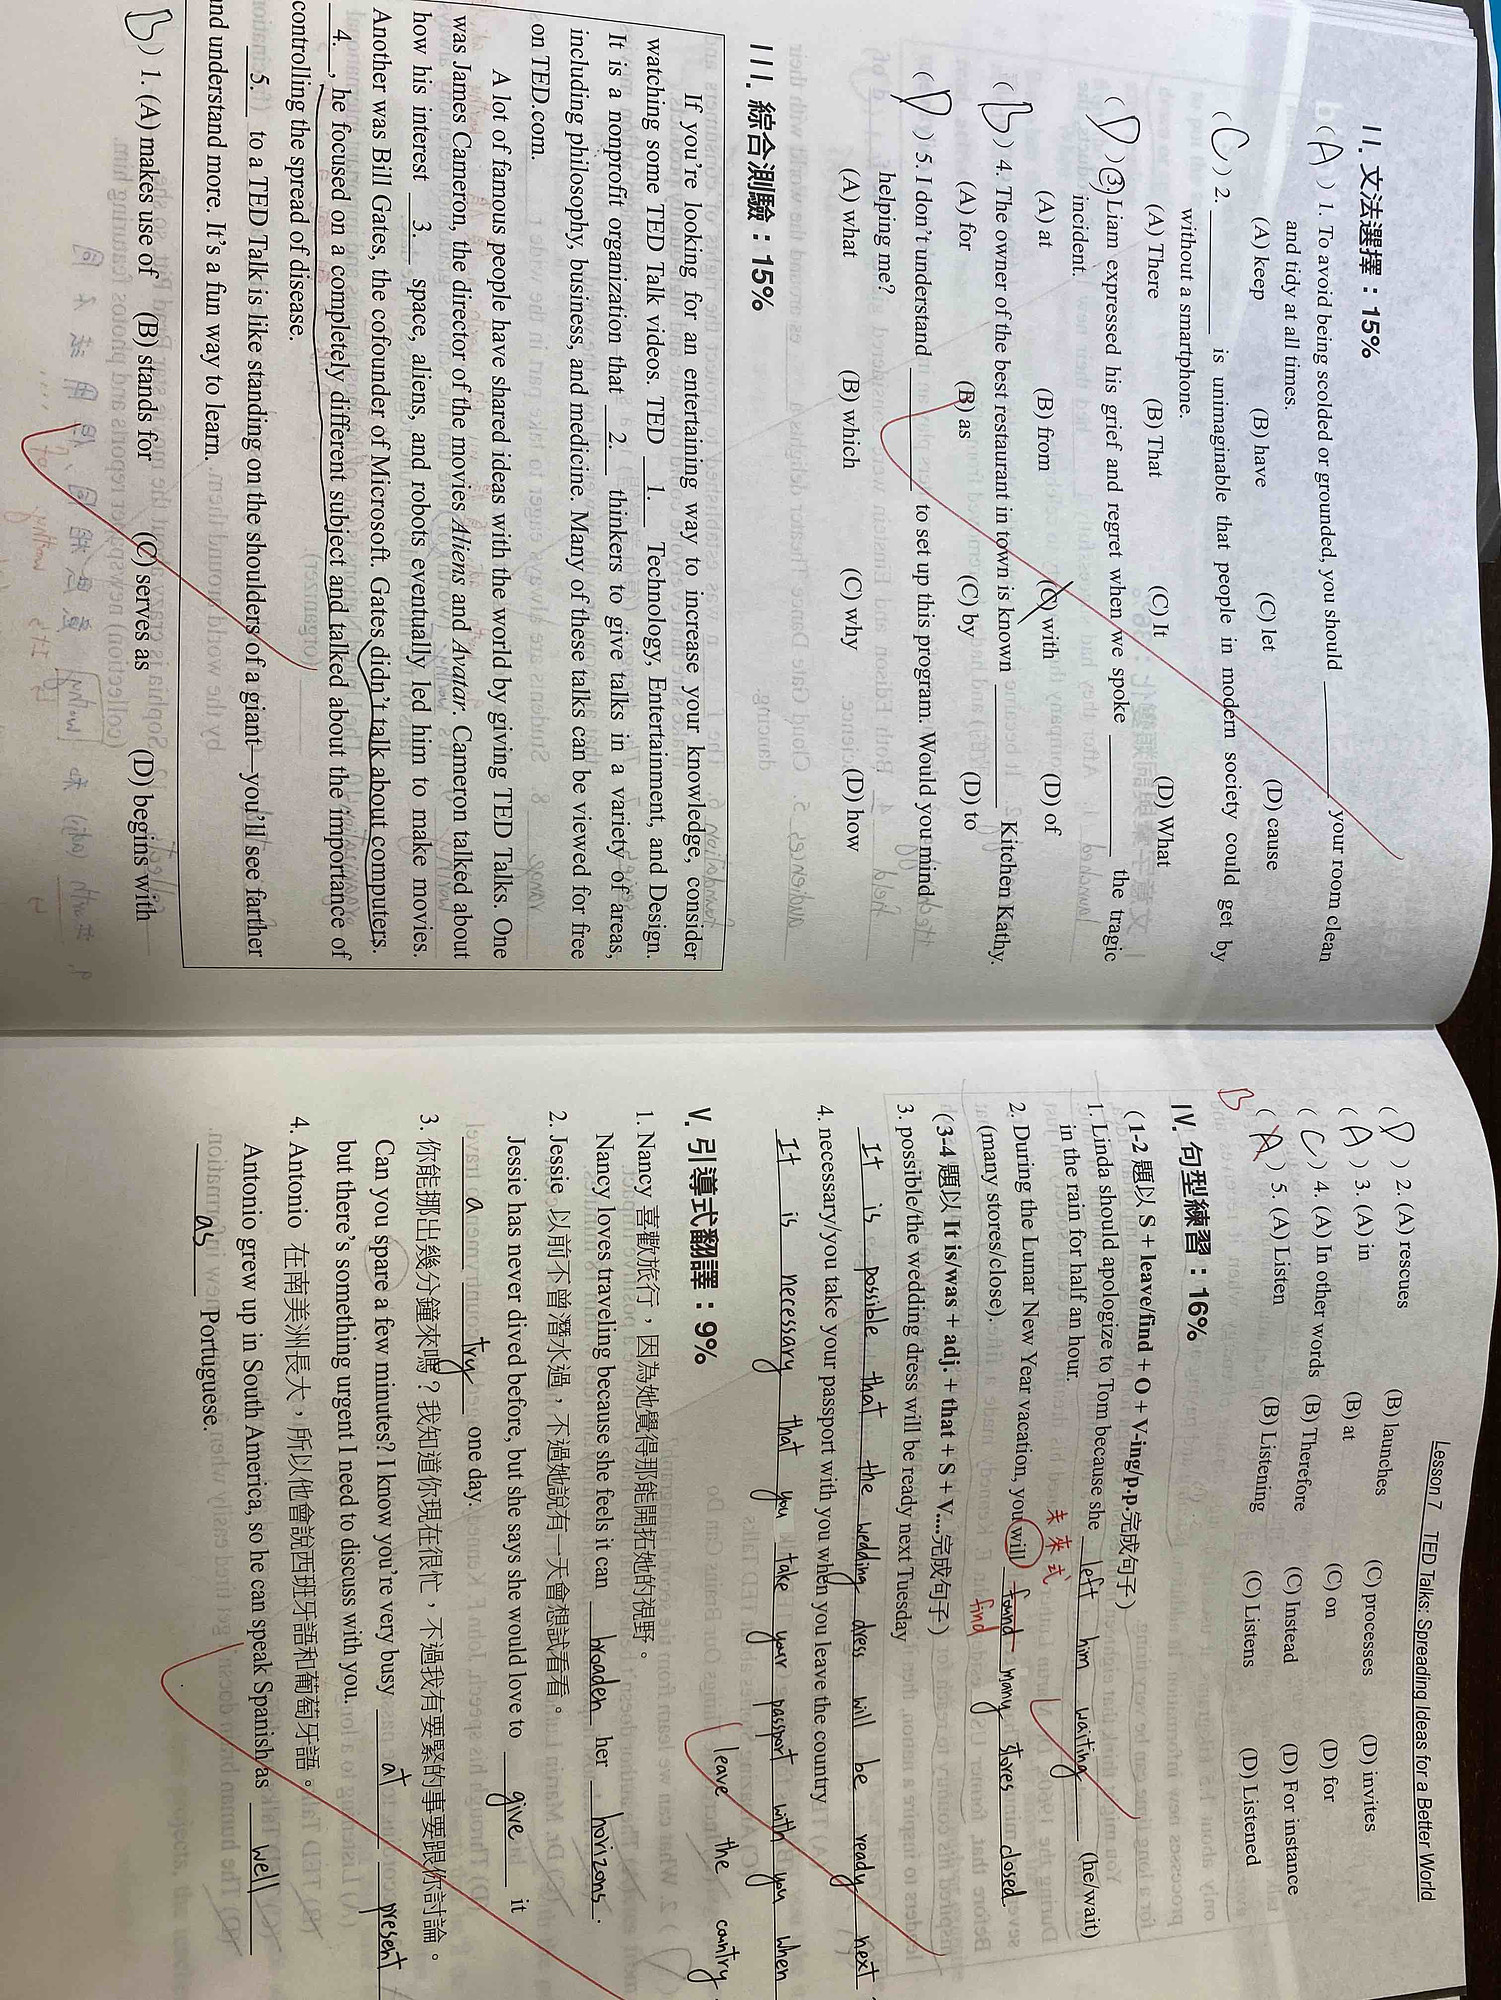 II. 文法選擇：15%
( A ) 1. To avoid being scolded or grounded, you should ________ your room clean
and tidy at all times.
(A) keep (B) have (C) let (D) cause
( C ) 2. ________ is unimaginable that people in modern society could get by
without a smartphone.
(A) There (B) That (C) It (D) What
( D ) 3. Liam expressed his grief and regret when we spoke ________ the tragic
incident.
(A) at (B) from (C) with (D) of
( B ) 4. The owner of the best restaurant in town is known ________ Kitchen Kathy.
(A) for (B) as (C) by (D) to
( D ) 5. I don't understand ________ to set up this program. Would you mind
helping me?
(A) what (B) which (C) why (D) how
III. 綜合測驗：15%
If you're looking for an entertaining way to increase your knowledge, consider
watching some TED Talk videos. TED __1.__ Technology, Entertainment, and Design.
It is a nonprofit organization that __2.__ thinkers to give talks in a variety of areas,
including philosophy, business, and medicine. Many of these talks can be viewed for free
on TED.com.
A lot of famous people have shared ideas with the world by giving TED Talks. One
was James Cameron, the director of the movies Aliens and Avatar. Cameron talked about
how his interest __3.__ space, aliens, and robots eventually led him to make movies.
Another was Bill Gates, the cofounder of Microsoft. Gates didn't talk about computers.
__4.__, he focused on a completely different subject and talked about the importance of
controlling the spread of disease.
__5.__ to a TED Talk is like standing on the shoulders of a giant—you'll see farther
and understand more. It's a fun way to learn.
( B ) 1. (A) makes use of (B) stands for (C) serves as (D) begins with
Lesson 7 TED Talks: Spreading Ideas for a Better World
( D ) 2. (A) rescues (B) launches (C) processes (D) invites
( A ) 3. (A) in (B) at (C) on (D) for
( C ) 4. (A) In other words (B) Therefore (C) Instead (D) For instance
B ( A ) 5. (A) Listen (B) Listening (C) Listens (D) Listened
IV. 句型練習：16%
( 1-2 題以 S + leave/find + O + V-ing/p.p.完成句子)
1. Linda should apologize to Tom because she left him waiting (he/wait)
in the rain for half an hour.
未來式
2. During the Lunar New Year vacation, you will found many stores closed
find
(many stores/close).
(3-4 題以 It is/was + adj. + that + S + V....完成句子)
3. possible/the wedding dress will be ready next Tuesday
It is possible that the wedding dress will be ready next
4. necessary/you take your passport with you when you leave the country
It is necessary that you take your passport with you when
leave the country
V. 引導式翻譯：9%
1. Nancy 喜歡旅行，因為她覺得那能開拓她的視野。
Nancy loves traveling because she feels it can broaden her horizons.
2. Jessie 以前不曾潛水過，不過她說有一天會想試看看。
Jessie has never dived before, but she says she would love to give it
a try one day.
3. 你能挪出幾分鐘來嗎？我知道你現在很忙，不過我有要緊的事要跟你討論。
Can you spare a few minutes? I know you're very busy at present
but there's something urgent I need to discuss with you.
4. Antonio 在南美洲長大，所以他會說西班牙語和葡萄牙語。
Antonio grew up in South America, so he can speak Spanish as well
as Portuguese.